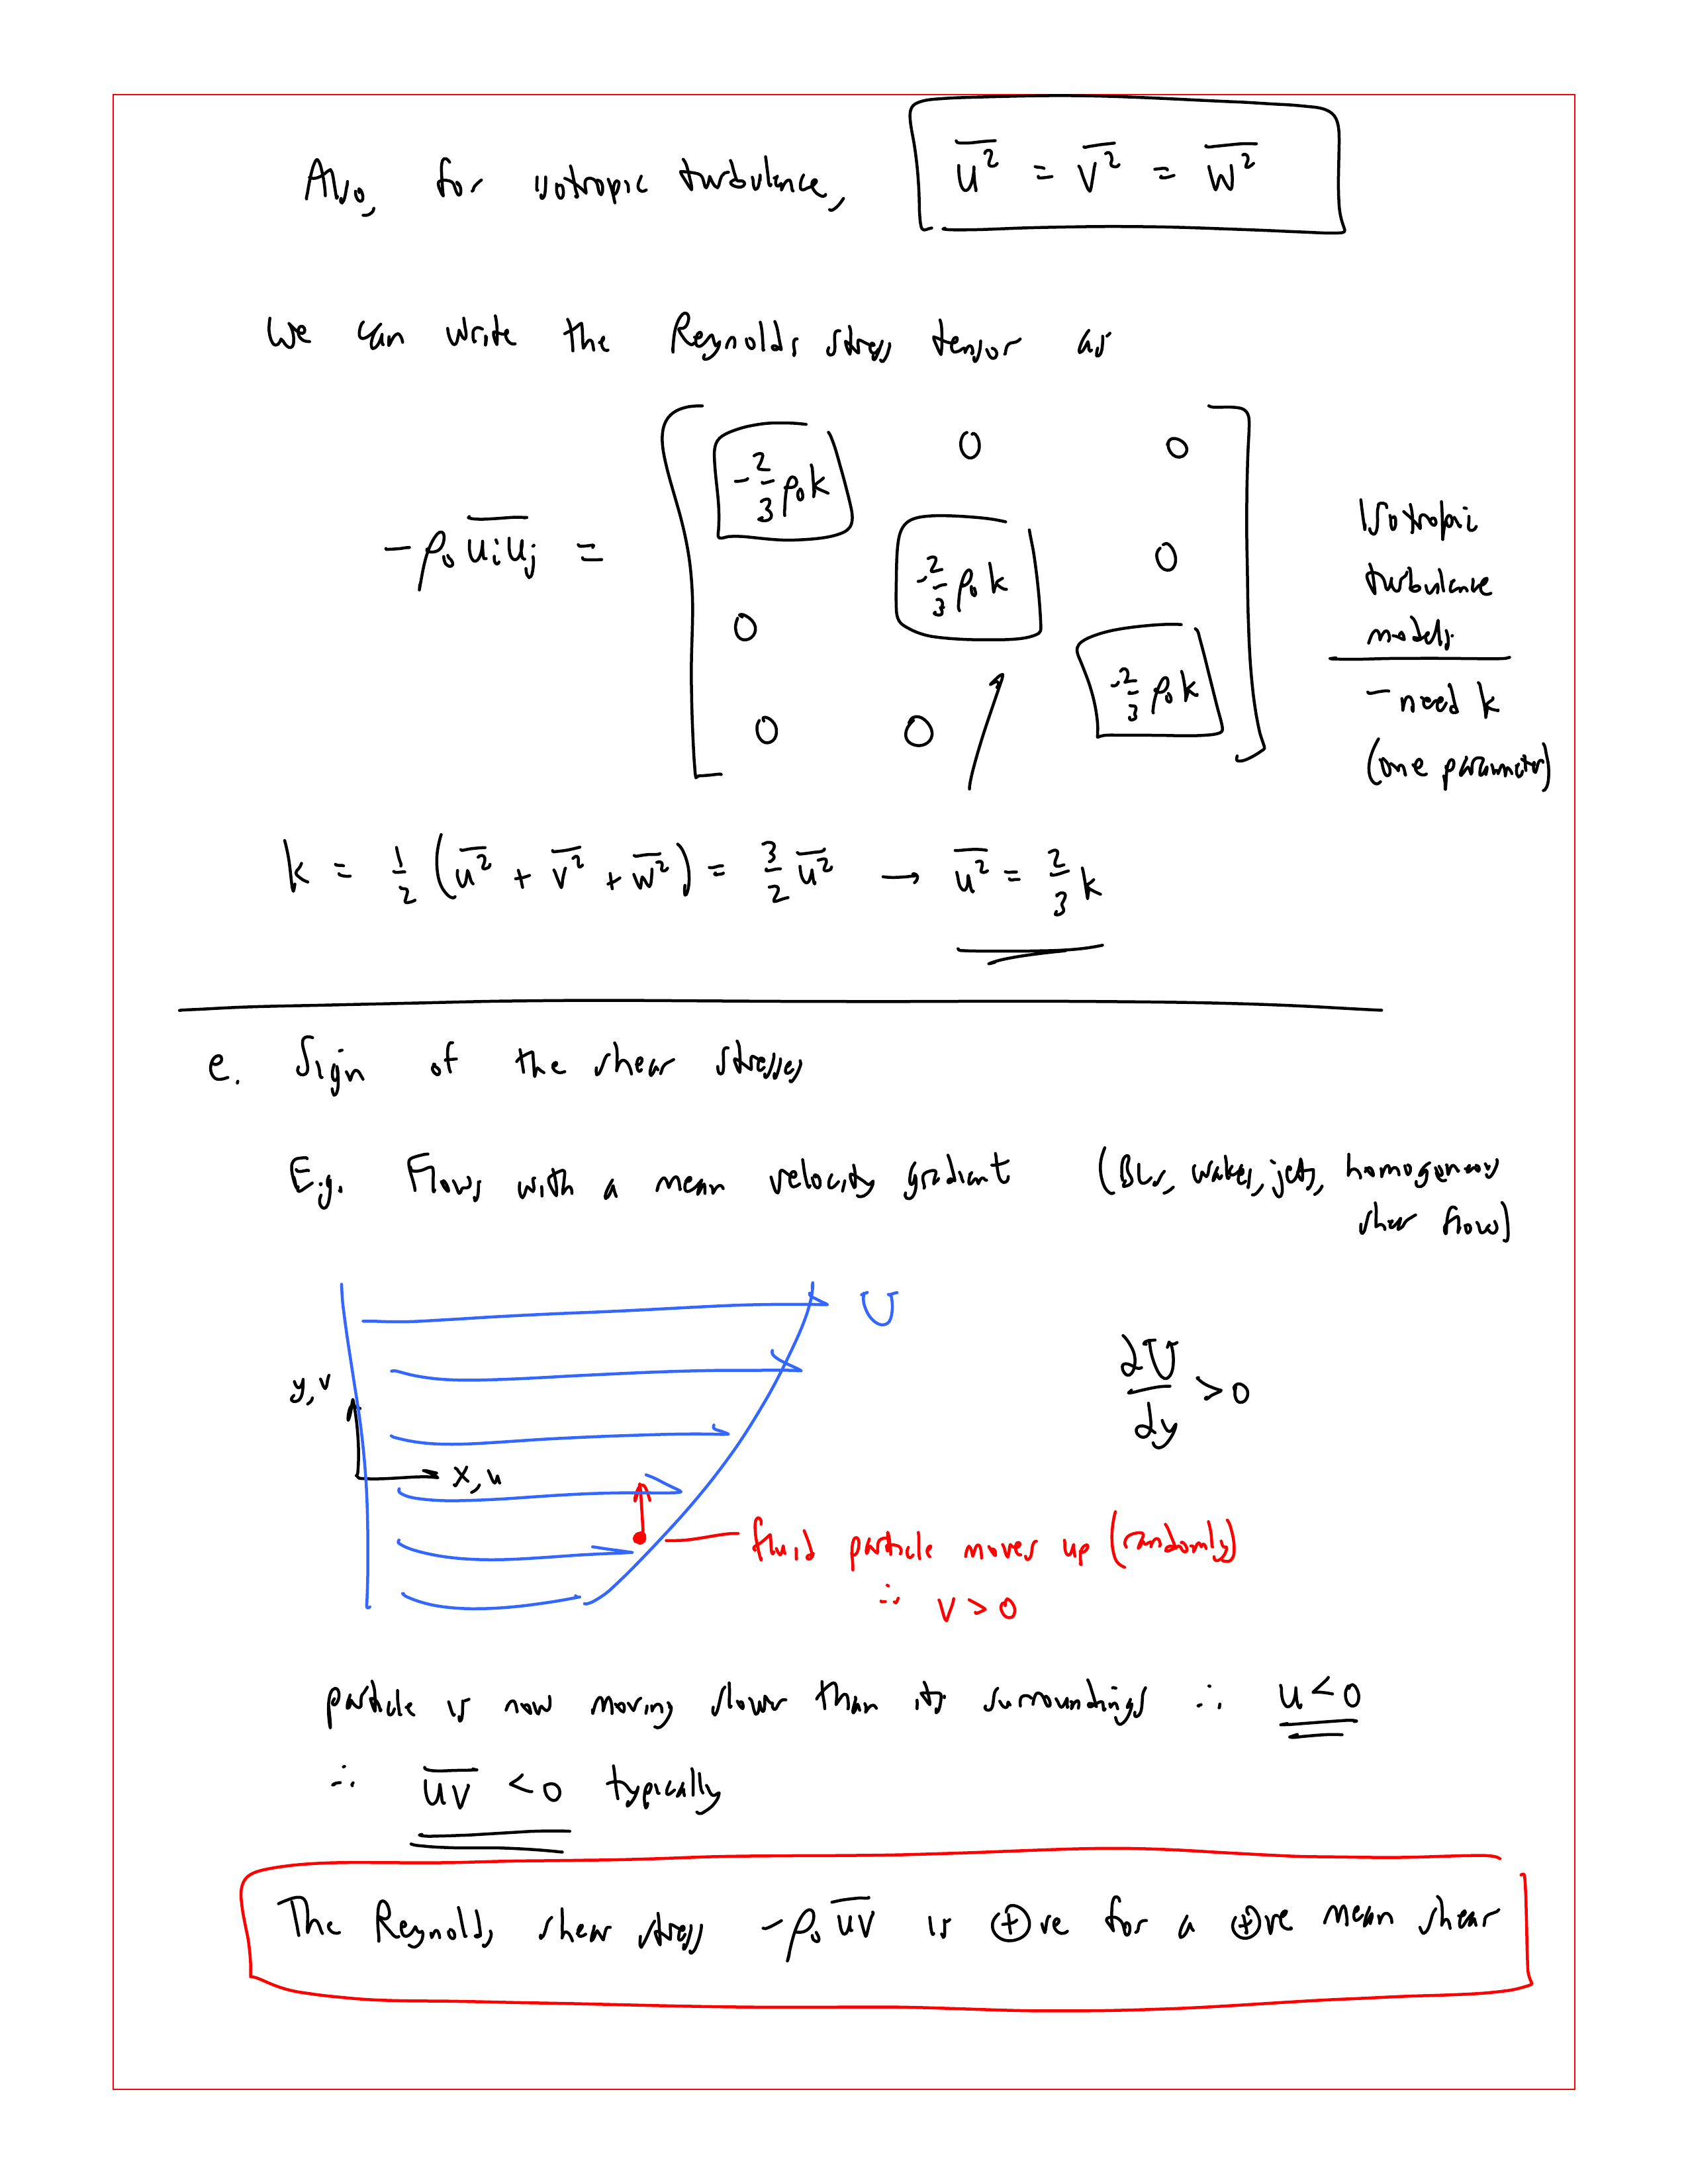 Also, for isotropic turbulence, $\overline{u^2} = \overline{v^2} = \overline{w^2}$
We can write the Reynolds stress tensor as
$-\rho_0 \overline{u_i u_j} = \begin{bmatrix} -\frac{2}{3}\rho_0 k & 0 & 0 \\ 0 & -\frac{2}{3}\rho_0 k & 0 \\ 0 & 0 & -\frac{2}{3}\rho_0 k \end{bmatrix}$
Isotropic
turbulence
models
- need k
(one parameter)
$k = \frac{1}{2}\left(\overline{u^2} + \overline{v^2} + \overline{w^2}\right) = \frac{3}{2}\overline{u^2} \rightarrow \overline{u^2} = \frac{2}{3}k$
e. Sign of the shear stresses
E.g. Flows with a mean velocity gradient (BLs, wakes, jets, homogeneous
shear flow)
U
y, v
x, u
$\frac{\partial U}{\partial y} > 0$
fluid particle moves up (randomly)
∴ v > 0
particle is now moving slower than its surroundings ∴ u < 0
∴ $\overline{uv} < 0$ typically
The Reynolds shear stress $-\rho_0 \overline{uv}$ is ⊕ve for a ⊕ve mean shear